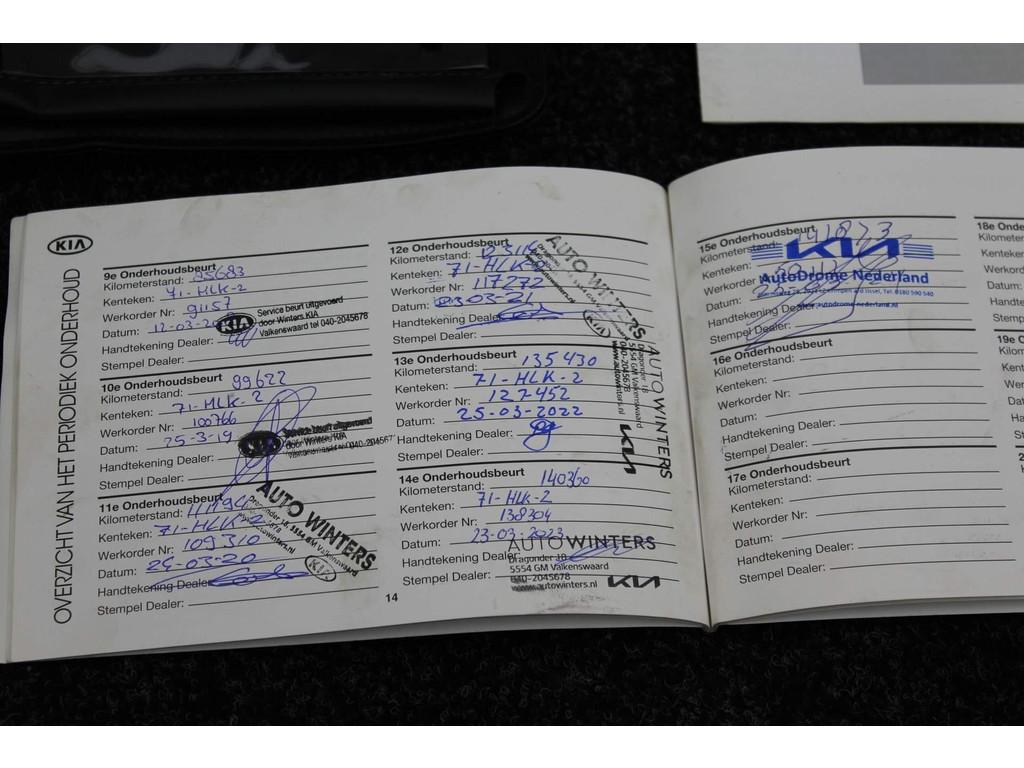 KIA
OVERZICHT VAN HET PERIODIEK ONDERHOUD
9e Onderhoudsbeurt
Kilometerstand: 85683
Kenteken: 71-HLK-2
Werkorder Nr: 91157
Datum: 12-03-
Handtekening Dealer:
Stempel Dealer:
KIA
Service beurt uitgevoerd
door Winters KIA
Valkenswaard tel 040-2045678
10e Onderhoudsbeurt
Kilometerstand: 99622
Kenteken: 71-HLK-2
Werkorder Nr: 100766
Datum: 25-3-19
Handtekening Dealer:
Stempel Dealer:
KIA
Service beurt uitgevoerd
door Winters KIA
11e Onderhoudsbeurt
Kilometerstand:
Kenteken: 71-HLK-2
Werkorder Nr: 109310
Datum: 24-03-20
Handtekening Dealer:
Stempel Dealer:
AUTO WINTERS
Dragonder 18, 5554 GM Valkenswaard
KIA
14
12e Onderhoudsbeurt
Kilometerstand:
Kenteken: 71-HLK-2
Werkorder Nr: 117272
Datum: 23-03-21
Handtekening Dealer:
Stempel Dealer:
AUTO WINTERS
KIA
13e Onderhoudsbeurt
Kilometerstand: 135430
Kenteken: 71-HLK-2
Werkorder Nr: 127452
Datum: 25-03-2022
Handtekening Dealer:
Stempel Dealer:
AUTO WINTERS
Dragonder 18
5554 GM Valkenswaard
040-2045678
www.autowinters.nl
KIA
14e Onderhoudsbeurt
Kilometerstand: 140360
Kenteken: 71-HLK-2
Werkorder Nr: 138304
Datum: 23-03-2023
Handtekening Dealer:
Stempel Dealer:
AUTO WINTERS
Dragonder 18
5554 GM Valkenswaard
040-2045678
www.autowinters.nl
KIA
15e Onderhoudsbeurt
Kilometerstand: 141873
Kenteken:
Werkorder Nr:
Datum:
Handtekening Dealer:
Stempel Dealer:
KIA
AutoDrome Nederland
16e Onderhoudsbeurt
Kilometerstand:
Kenteken:
Werkorder Nr:
Datum:
Handtekening Dealer:
Stempel Dealer:
17e Onderhoudsbeurt
Kilometerstand:
Kenteken:
Werkorder Nr:
Datum:
Handtekening Dealer:
Stempel Dealer:
18e On
Kilometers
Kenteken
Werkord
Datum:
Handte
Stemp
19e O